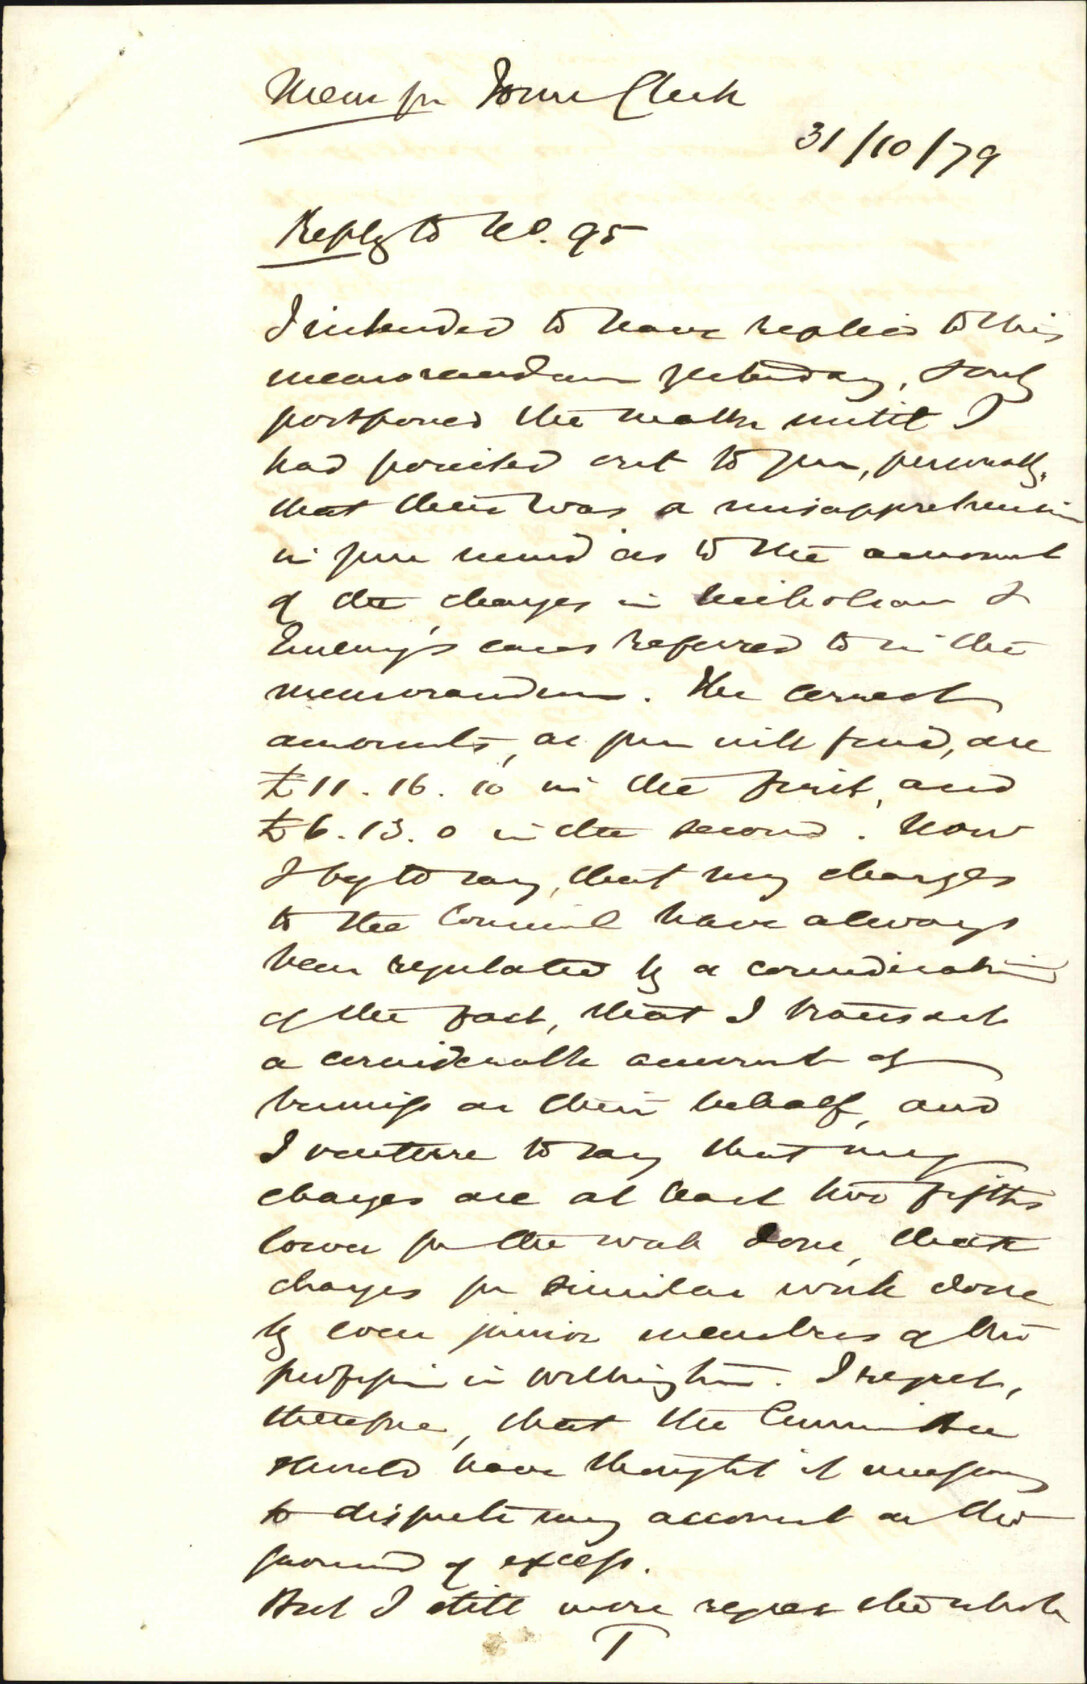 Memo for Town Clerk
31/10/79
Reply to No. 95
I intended to have replied to this
memorandum yesterday, & only
postponed the matter until I
had pointed out to you, personally,
that there was a misapprehension
in your mind as to the amount
of the charges in Nicholson &
cases referred to in the
memorandum. The correct
amounts, as you will find, are
£11. 16. 10 in the first, and
£6. 13. 0 in the second. Now
I beg to say, that my charges
to the Council have always
been regulated by a consideration
of the fact, that I transact
a considerable amount of
business on their behalf, and
I venture to say that my
charges are at least two fifths
lower for the work done, than
charges for similar work done
by even junior members of the
profession in Wellington. I regret,
therefore, that the Committee
should have thought it necessary
to dispute my account on the
ground of excess.
But I still more regret the whole
1